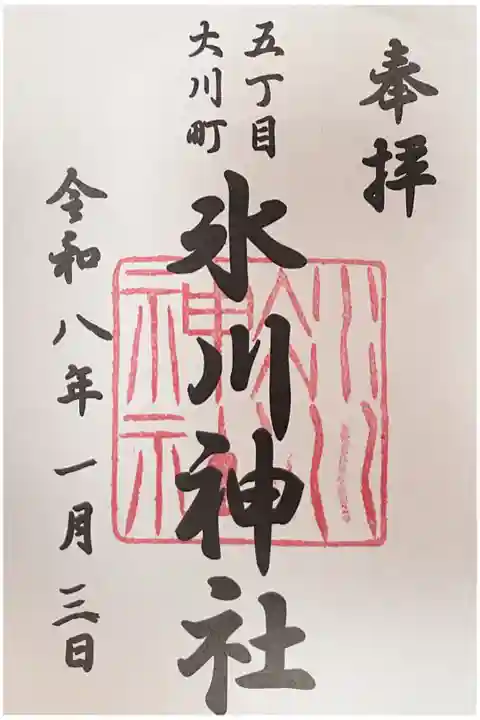 奉拝
五丁目
大川町
氷川神社
令和八年一月三日
氷川
神社